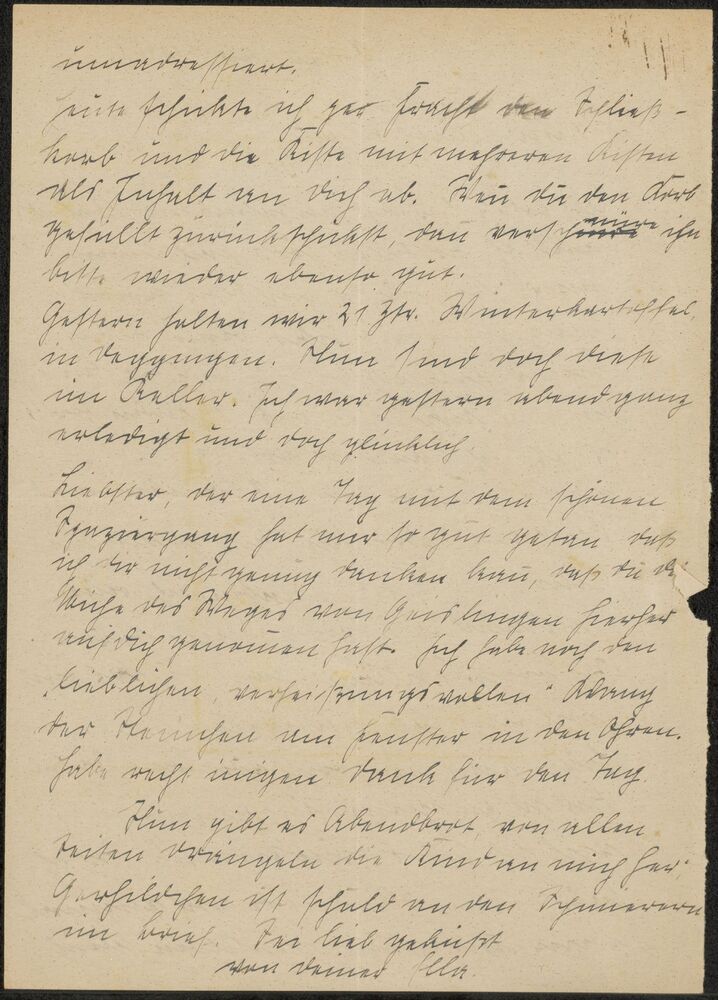 umadressiert.
Heute schickte ich per Fracht den Schließ-
korb und die Kiste mit mehreren Kisten
als Inhalt an Dich ab. Wen̄ du den Korb
gefüllt zurückschickst, dan̄ verschnüre ihn
bitte wieder ebenso gut.
Gestern holten wir 21 Ztr. Winterkartoffel,
in Deggingen. Nun sind doch diese
im Keller. Ich war gestern abend ganz
erledigt und doch glücklich.
Liebster, der eine Tag mit dem schönen
Spaziergang hat mir so gut getan daß
ich dir nicht genug danken kan̄, daß du die
Mühe des Weges von Geislingen hierher
auf dich genom̄en hast. Ich habe noch den
„lieblichen, verheißungsvollen“ Klang
der Steinchen am Fenster in den Ohren.
Habe recht in̄igen Dank für den Tag.
Nun gibt es Abendbrot, von allen
Seiten drängeln die Kind an mich her;
Gerhildchen ist schuld an den Schmierern
im Brief. Sei lieb geküsst
von deiner Ella.